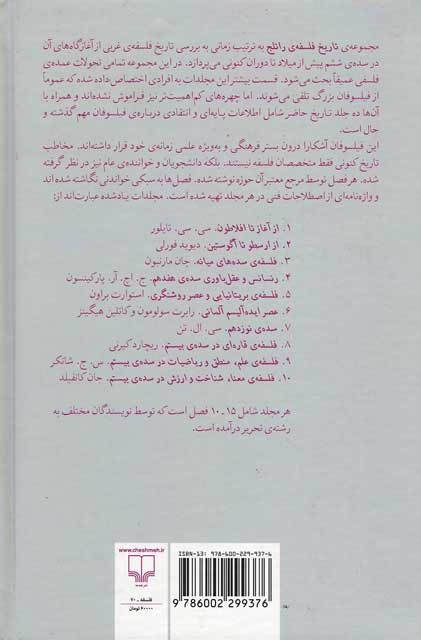 مجموعه‌ی تاریخ فلسفه‌ی راتلج به ترتیب زمانی به بررسی تاریخ فلسفه‌ی غربی از آغازگاه‌های آن
در سده‌ی ششم پیش از میلاد تا دوران کنونی می‌پردازد. در این مجموعه تمامی تحولات عمده‌ی
فلسفی عمیقاً بحث می‌شود. قسمت بیشتر این مجلدات به افرادی اختصاص داده شده که عموماً
از فیلسوفان بزرگ تلقی می‌شوند. اما چهره‌های کم‌اهمیت‌تر نیز فراموش نشده‌اند و همراه با
آن‌ها ده جلد تاریخ حاضر شامل اطلاعات پایه‌ای و انتقادی درباره‌ی فیلسوفان مهم گذشته و
حال است.
این فیلسوفان آشکارا درون بستر فرهنگی و به‌ویژه علمی زمانه‌ی خود قرار داشته‌اند. مخاطب
تاریخ کنونی فقط متخصصان فلسفه نیستند، بلکه دانشجویان و خواننده‌ی عام نیز در نظر گرفته
شده. هر فصل توسط مرجع معتبر آن حوزه نوشته شده. فصل‌ها به سبکی خواندنی نگاشته شده اند
و واژه‌نامه‌ای از اصطلاحات فنی در هر مجلد تهیه شده است. مجلدات یادشده عبارت‌اند از:
۱. از آغاز تا افلاطون. سی. سی. تایلور
۲. از ارسطو تا آگوستین. دیوید فورلی
۳. فلسفه‌ی سده‌های میانه. جان مارنبون
۴. رنسانس و عقل‌باوری سده‌ی هفدهم. ج. اچ. آر. پارکینسون
۵. فلسفه‌ی بریتانیایی و عصر روشنگری. استوارت براون
۶. عصر ایده‌آلیسم آلمانی. رابرت سولومون و کاتلین هیگینز
۷. سده‌ی نوزدهم. سی. ال. تن
۸. فلسفه‌ی قاره‌ای در سده‌ی بیستم. ریچارد کیرنی
۹. فلسفه‌ی علم، منطق و ریاضیات در سده‌ی بیستم. س. ج. شانکر
۱۰. فلسفه‌ی معنا، شناخت و ارزش در سده‌ی بیستم. جان کانفیلد
هر مجلد شامل ۱۵ ـ ۱۰ فصل است که توسط نویسندگان مختلف به
رشته‌ی تحریر درآمده است.
www.cheshmeh.ir
فلسفه - ۷۰
۶۰۰۰۰ تومان
ISBN-13: 978-600-229-937-6
9 786002 299376